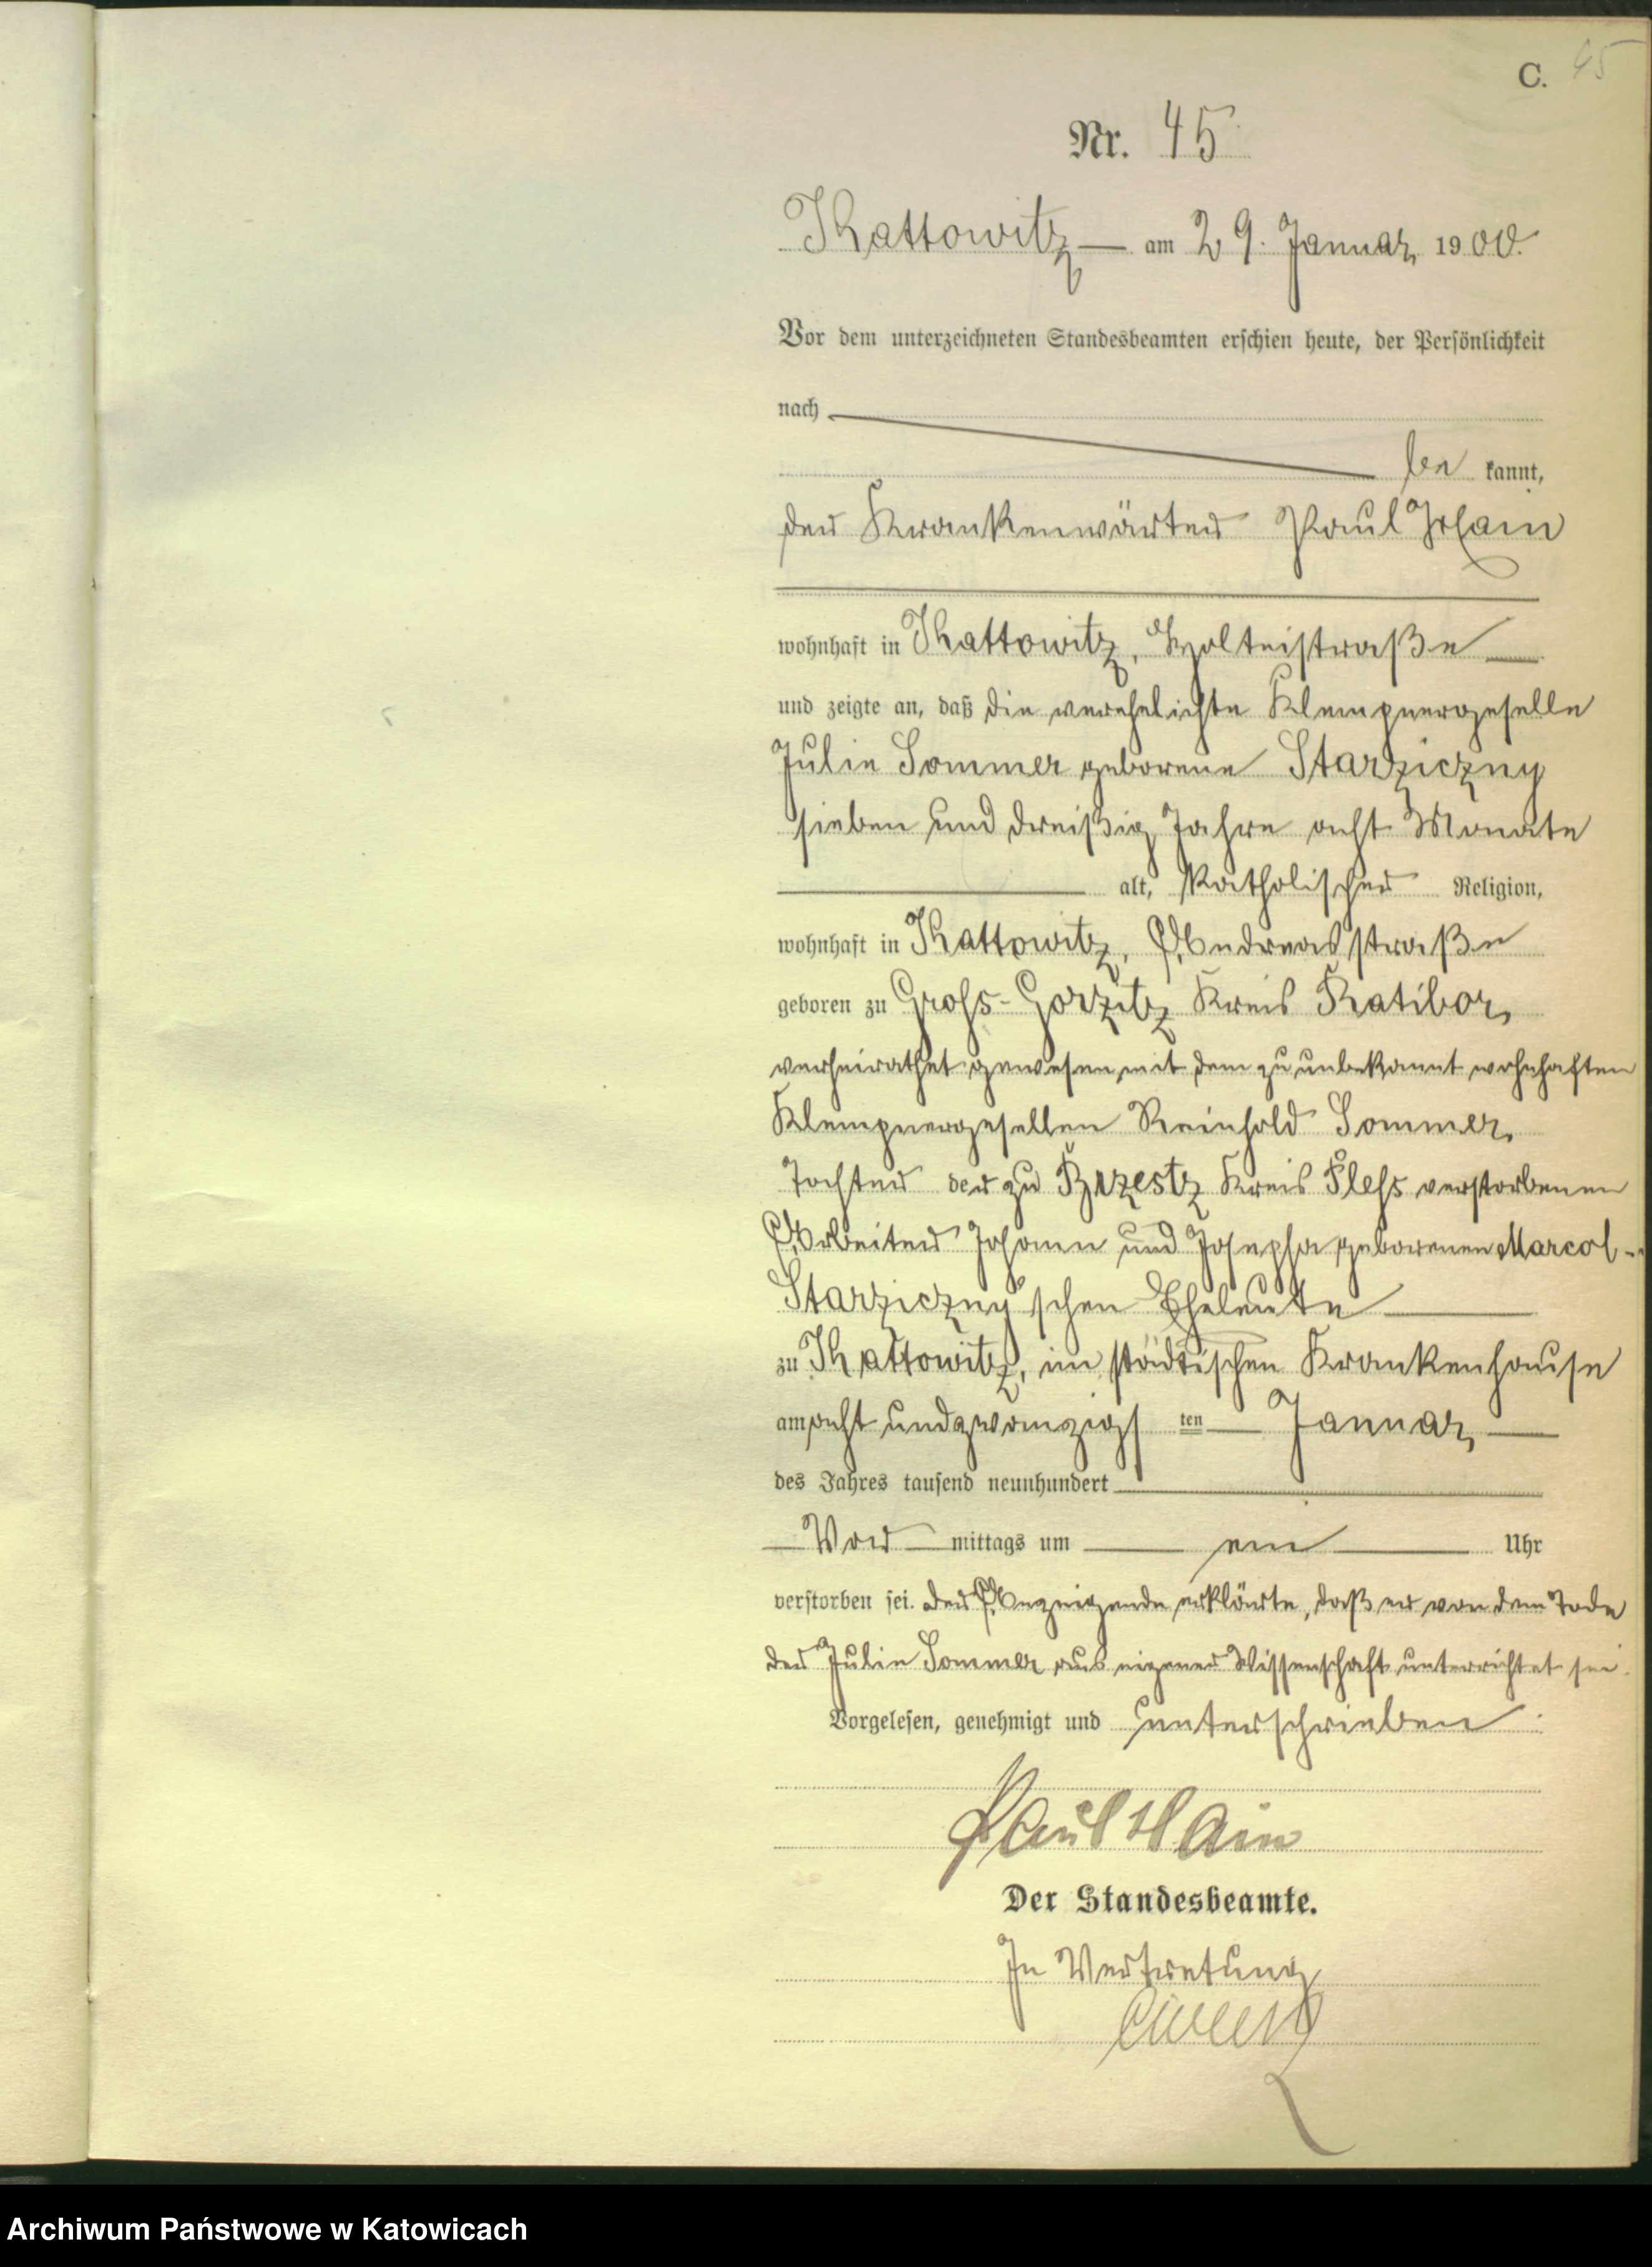 C. 45
Nr. 45
Kattowitz am 29. Januar 1900.
Vor dem unterzeichneten Standesbeamten erschien heute, der Persönlichkeit
nach
be kannt,
der Krankenwärter Paul Hain
wohnhaft in Kattowitz, Holteistraße
und zeigte an, daß die verehelichte Klempnergeselle
Julie Sommer geborene Starziczny
sieben und dreißig Jahre acht Monate
alt, katholischer Religion,
wohnhaft in Kattowitz, Andreasstraße
geboren zu Gross-Gorzütz Kreis Ratibor,
verheirathet gewesen mit dem zu unbekannt wohnhaften
Klempnergesellen Reinhold Sommer,
Tochter der zu Brzestz Kreis Pless verstorbenen
Arbeiter Johann und Josepha geborenen Marcol-
Starziczny'schen Eheleute
zu Kattowitz, im städtischen Krankenhause
am acht und zwanzigs ten Januar
des Jahres tausend neunhundert
Vor mittags um ein Uhr
verstorben sei. Der Anzeigende erklärte, daß er von dem Tode
der Julie Sommer aus eigener Wissenschaft unterrichtet sei.
Vorgelesen, genehmigt und unterschrieben
Paul Hain
Der Standesbeamte.
In Vertretung
Archiwum Państwowe w Katowicach